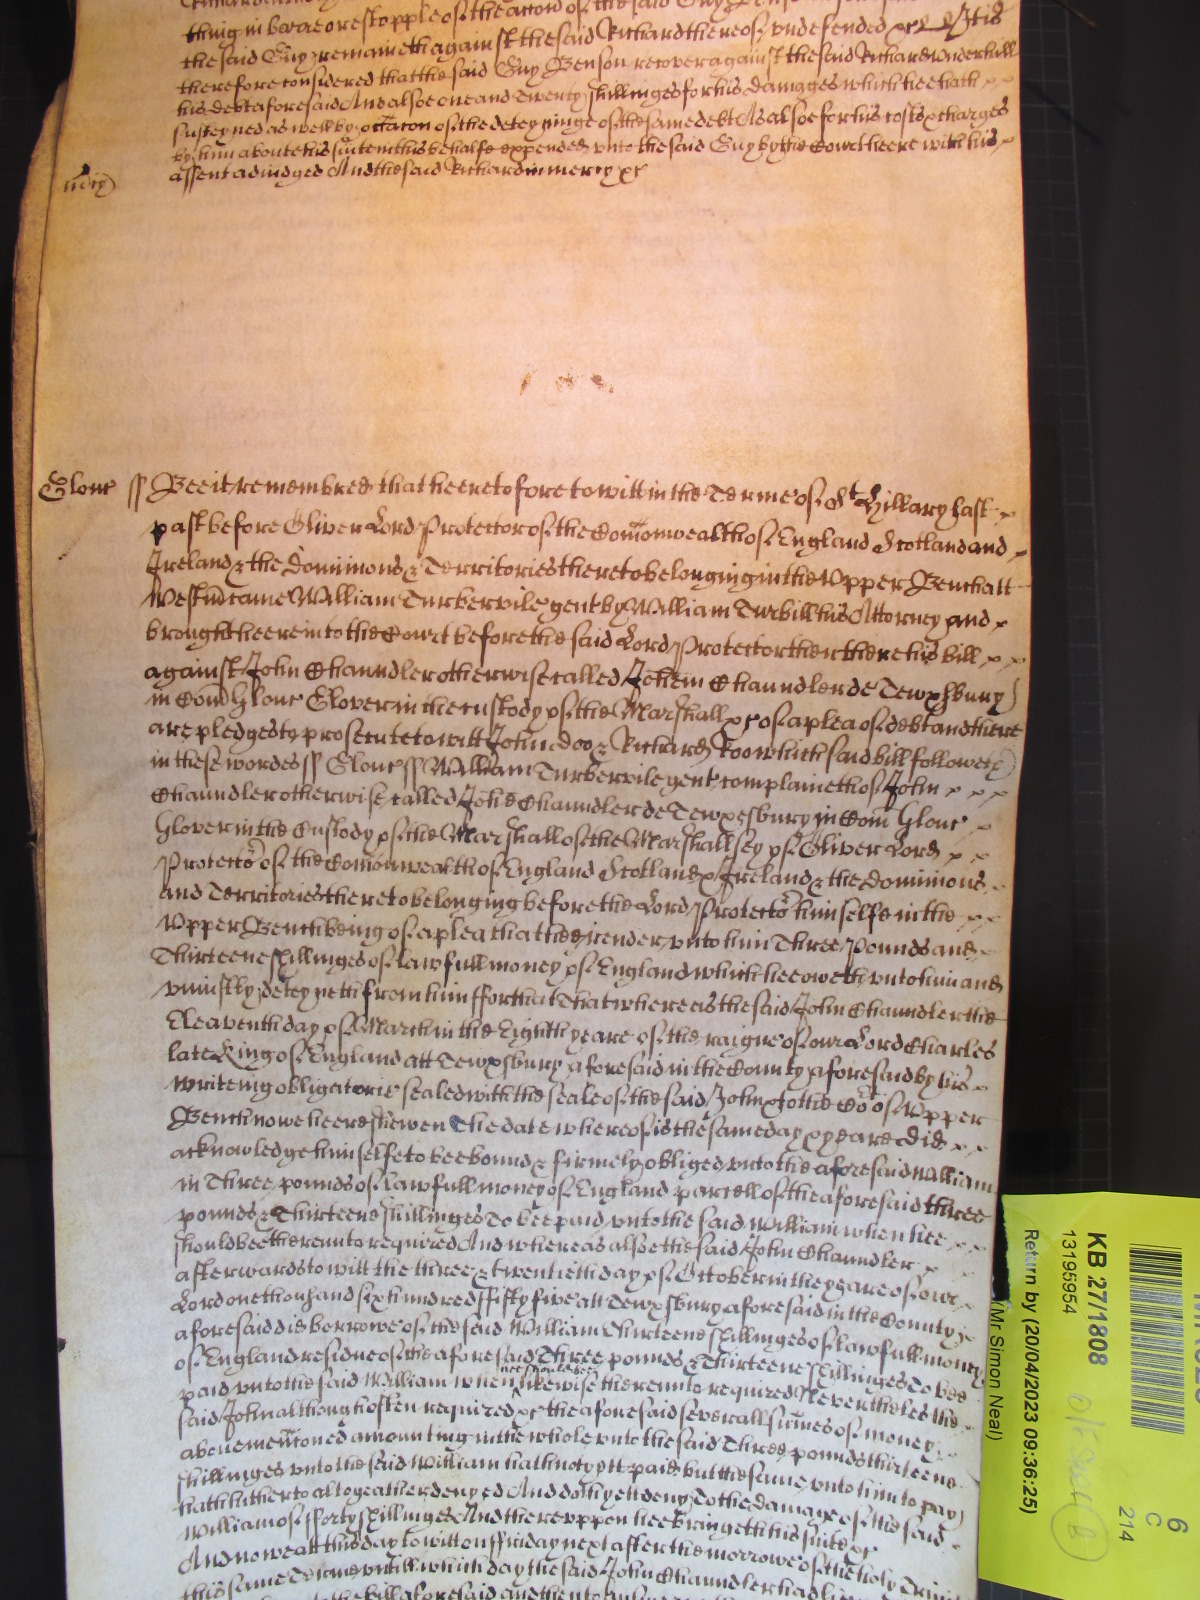 thing in barre or estopple of the accon of the said Guy
the said Guy remaineth against the said Richard thereof undefended &c It is
therefore considered that the said Guy Benson recover against the said Richard Underhill
his debt aforesaid And alsoe one and Twenty shillinges for his damages which hee hath
susteyned as well by occacon of the deteyninge of the same debt As alsoe for his costs & charges
by him about his suite in this behalfe expended unto the said Guy by the Court heere with his
assent adiudged And the said Richard in mercy &c
mcy
Glouc ss Bee it remembred that heeretofore to witt in the Terme of St Hillary last
past before Oliver Lord Protector of the Comonwealth of England Scotland and
Ireland & the Dominions & Territories thereto belonging in the Upper Bench att
Westm came William Turbervile gent by William Turbill his Attorney and
brought heere into the Court before the said Lord Protector then there his bill
against John Chaundler otherwise called John Chaundler de Tewxbury
in Com Glouc Glover in the custody of the Marshall &c of a plea of debt and there
are pledges to prosecute to witt John doo & Richard Roo which said bill followeth
in these wordes ss Glouc ss William Turbervile gent complaineth of John
Chaundler otherwise called John Chaundler de Tewxesbury in Com Glouc
Glover in the Custody of the Marshall of the Marshallsey of Oliver Lord
Protector of the Comonwealth of England Scotland & Ireland & the Dominions
and Territories thereto belonging before the Lord Protector himselfe in the
Upper Bench being of a plea that hee render unto him Three Pounds and
Thirteene shillinges of lawfull money of England which hee oweth unto him and
uniustly deteyneth from him ffor that That whereas the said John Chaundler the
Eleaventh day of March in the Eighth yeare of the raigne of our Lord Charles
late King of England att Tewxsbury aforesaid in the County aforesaid by his
writeing obligatorie sealed with the seale of the said John & to the Co of Upper
Bench nowe heere shewen The date whereof is the same day & yeare did
acknowledge himselfe to bee bound & firmely obliged unto the aforesaid William
in Three pounds of lawfull money of England parcell of the aforesaid three
pounds & Thirteene shillinges To bee paid unto the said William when hee
should bee thereunto required And whereas alsoe the said John Chaundler
afterwards to witt the three & twentieth day of October in the yeare of our
Lord one thousand six hundred ffifty five att Tewxsbury aforesaid in the County
aforesaid did borrowe of the said William Thirteene shillinges of lawfull money
of England residue of the aforesaid Three pounds & Thirteene shillinges To bee
paid unto the said William when hee should bee likewise thereunto required Neverthelesse the
said John although often required &c the aforesaid severall sumes of money
abovemencioned amounting in the whole unto the said Three pounds thirteene
shillinges unto the said William hath not yett paid but the same unto him to pay
hath hitherto altogeather denyed And doth yett deny To the damage of the said
William of fforty shillinges And thereuppon hee bringeth his suite &c
And nowe att this day to witt on ffriday next after the morrowe of the holy Trinity
this same Terme untill which day the said John Chaundler had
to the bill aforesaid and then to
KB 27/1808
13195954
Return by (20/04/2023 09:36:25)
(Mr Simon Neal)
6
C
214